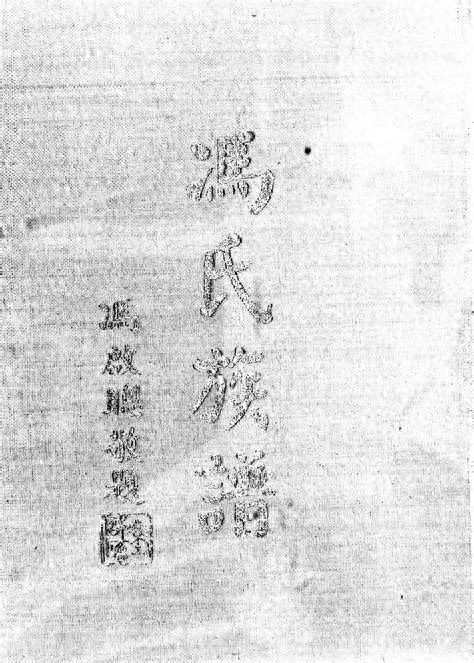 馮氏族譜
馮啟聰敬題